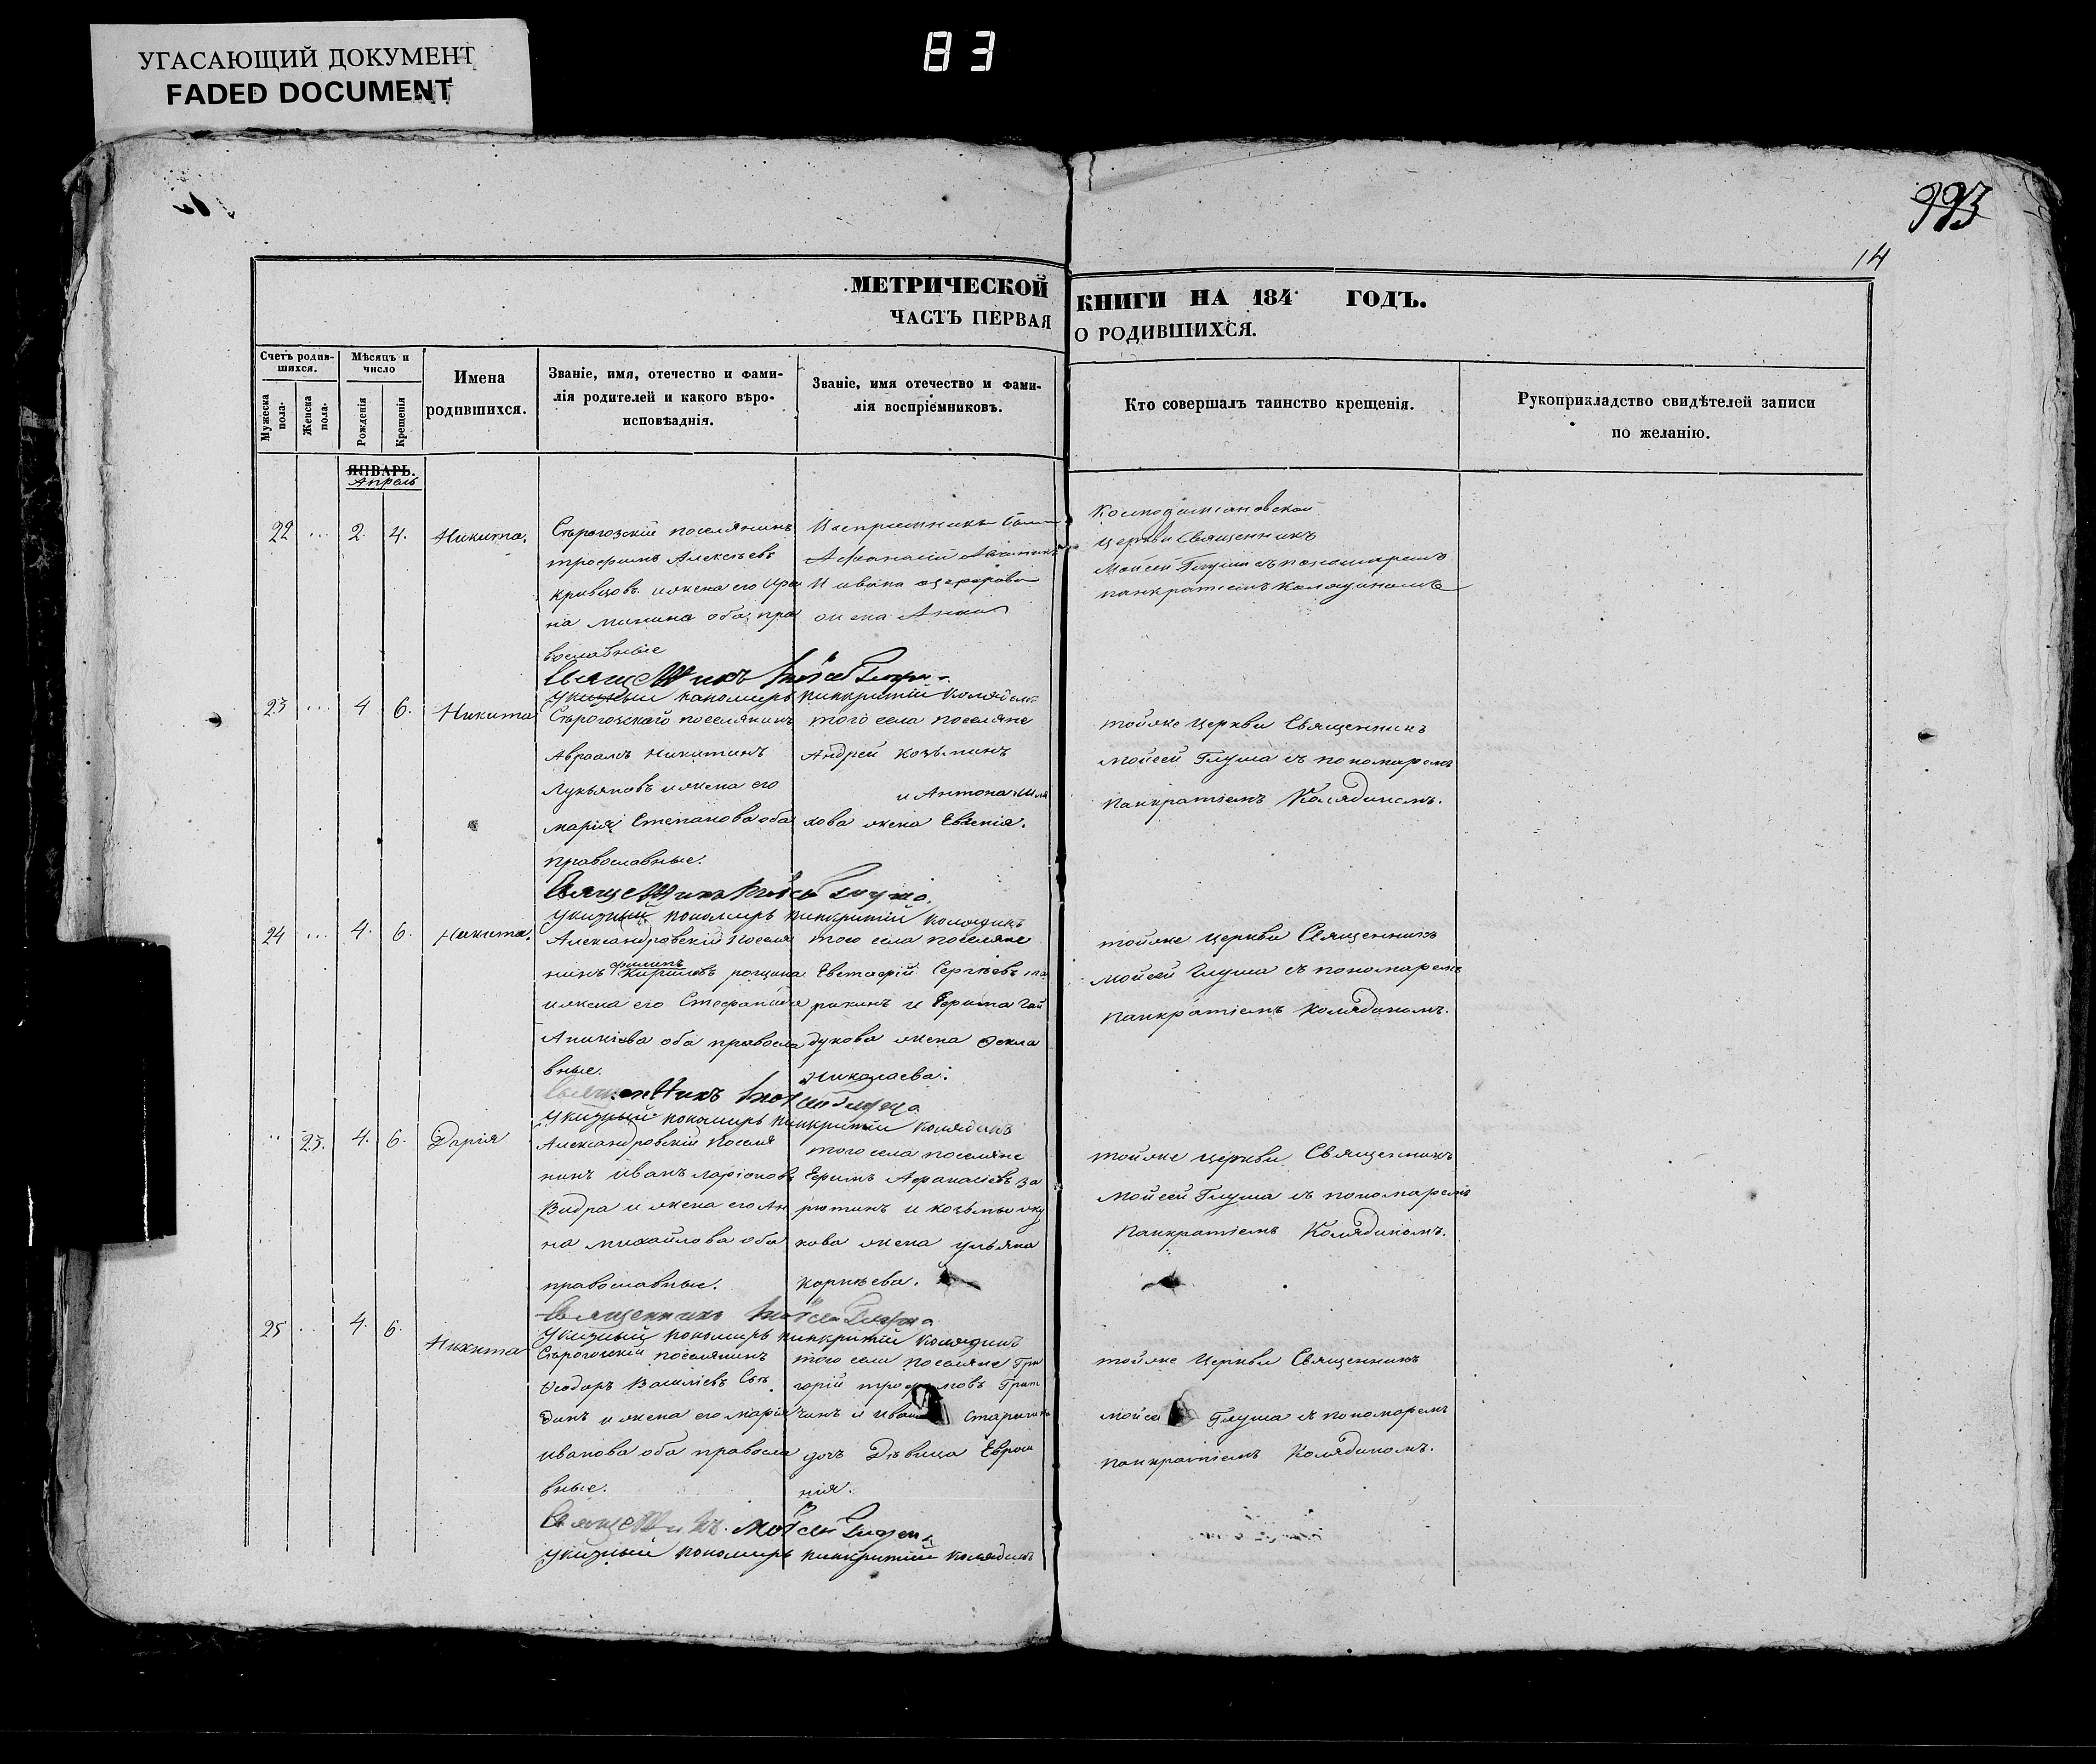 83
УГАСАЮЩИЙ ДОКУМЕНТ
FADED DOCUMENT
993
14
МЕТРИЧЕСКОЙ КНИГИ НА 184 ГОДЪ.
ЧАСТЬ ПЕРВАЯ О РОДИВШИХСЯ.
Счетъ родив-
шихся.
Мужеска пола.
Женска пола.
Мѣсяцъ и
число
Рожденія
Крещенія
Имена
родившихся.
Званіе, имя, отечество и фами-
лія родителей и какого вѣро-
исповѣаднія.
Званіе, имя отечество и фами-
лія воспріемниковъ.
Кто совершалъ таинство крещенія.
Рукоприкладство свидѣтелей записи
по желанію.
ЯНВАРЬ.
Апрель
22 ... 2. 4. Никита.
Сѣрогозскій поселянинъ
трофимъ Алексѣевъ
кривцовъ и жена его Ири
на минина оба пра
вославные
Воспріемники были
Афанасій
и ивана
жена Анна
Космодаміановской
церкви Священникъ
Моисей Глуша съ пономаремъ
панкратіемъ Колядиномъ
Священникъ Моисей Глуша
Указный пономарь панкратій Колядинъ
23 ... 4 6. Никита
Сѣрогозскій поселянинъ
Авраамъ Никитинъ
Лукьяновъ и жена его
марія Степанова оба
православные.
того села поселяне
Андрей Козьминъ
и Антона
жена Евгенія.
тойже церкви Священникъ
Моисей Глуша съ пономаремъ
Панкратіемъ Колядиномъ.
Священникъ Моисей Глуша.
Указный пономарь панкратій Колядинъ
24 ... 4. 6. Никита.
Александровскій поселя
нинъ Кириловъ рощина
и жена его Стефанида
Аникіева оба правосла
вные.
того села поселяне
Евстафій Сергѣевъ
и Ефима Гай
дукова жена Фекла
Николаева.
тойже церкви Священникъ
Моисей Глуша съ пономаремъ
Панкратіемъ Колядиномъ.
Священникъ Моисей Глуша
Указный пономарь панкратій Колядинъ
.. 23. 4. 6. Дарія
Александровскій поселя
нинъ иванъ ларіоновъ
Видра и жена его Ан
на михайлова оба
православные.
того села поселяне
Ефимъ Афанасіевъ за
рютинъ и козьмы жу
кова жена ульяна
корнѣева.
тойже церкви Священникъ
Моисей Глуша съ пономаремъ
Панкратіемъ Колядиномъ.
Священникъ Моисей Глуша
Указный пономарь панкратій Колядинъ
25 .. 4. 6. Никита
Сѣрогозскій поселянинъ
Феодоръ Василіевъ Сѣ
динъ и жена его марія
иванова оба правосла
вные.
того села поселяне Гри
горій трофимовъ Грит
чинъ и ивана
дочь Дѣвица Евфи
мія.
тойже церкви Священникъ
Моисей Глуша съ пономаремъ
панкратіемъ Колядиномъ.
Священникъ Моисей Глуша
указный пономарь панкратій Колядинъ